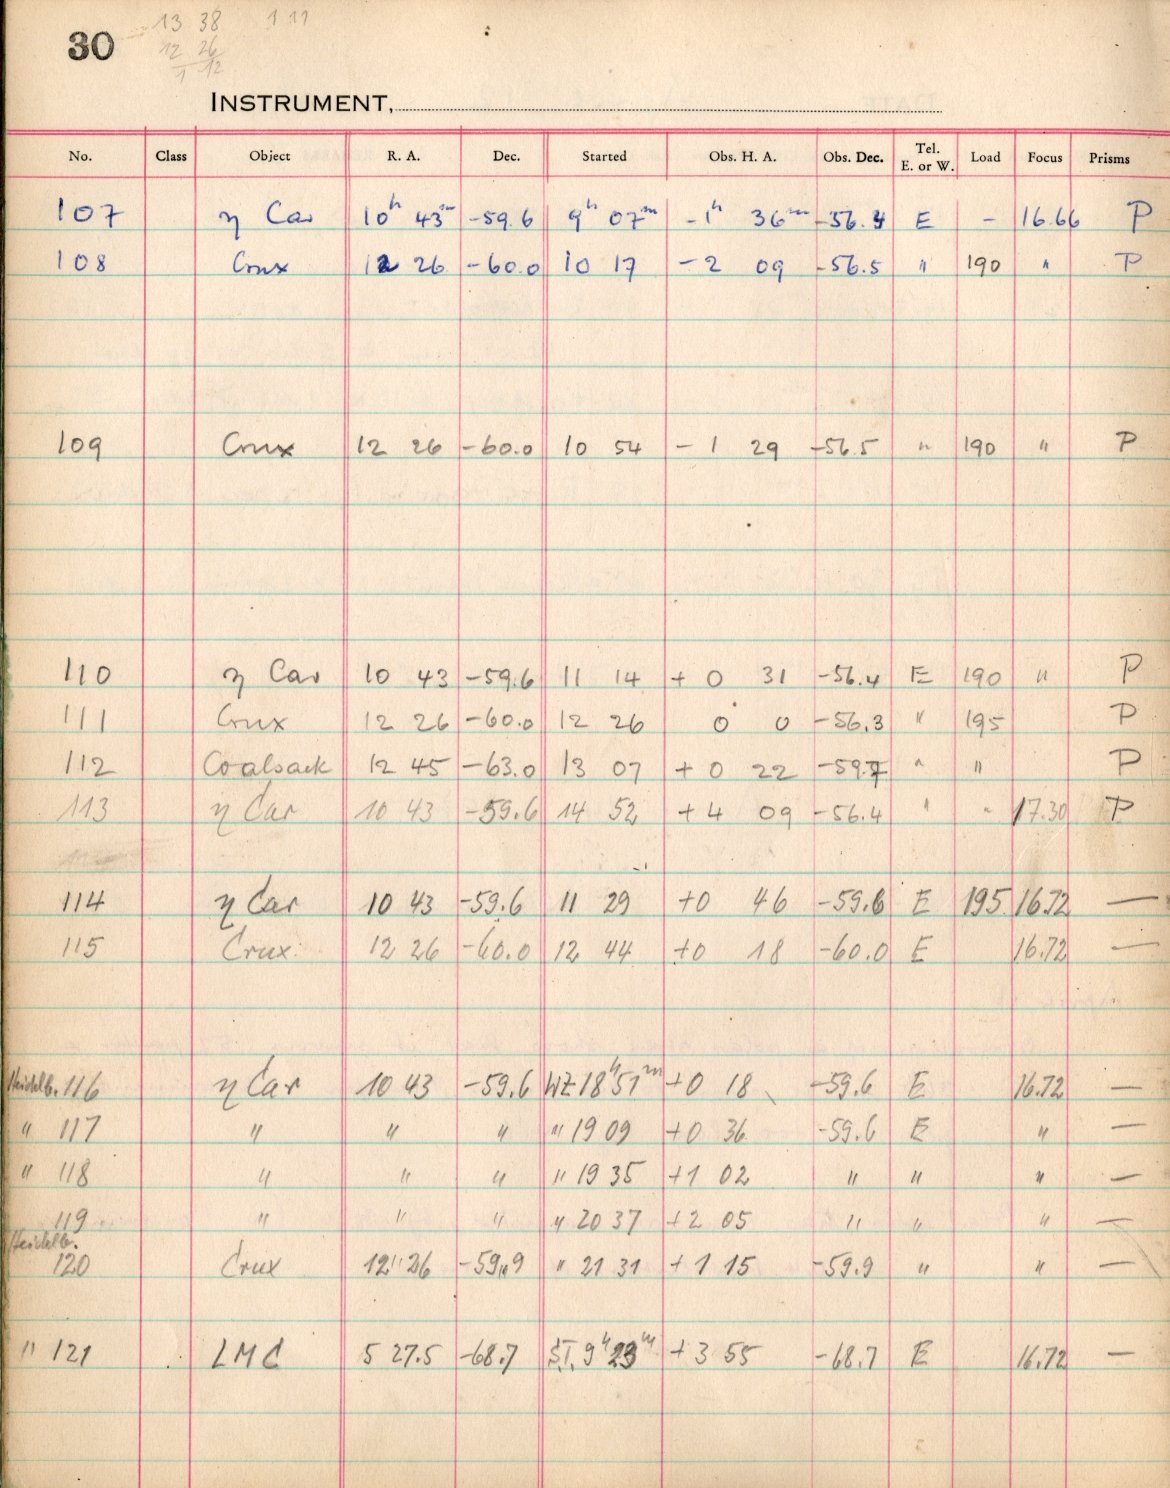 30
13 38 1 11
12 26
1 12
INSTRUMENT,
No. Class Object R. A. Dec. Started Obs. H. A. Obs. Dec. Tel. E. or W. Load Focus Prisms
107 η Car 10h 43m -59.6 9h 07m -1h 36m -56.4 E - 16.66 P
108 Crux 12 26 -60.0 10 17 -2 09 -56.5 " 190 " P
109 Crux 12 26 -60.0 10 54 -1 29 -56.5 " 190 " P
110 η Car 10 43 -59.6 11 14 +0 31 -56.4 E 190 " P
111 Crux 12 26 -60.0 12 26 0 0 -56.3 " 195 P
112 Coalsack 12 45 -63.0 13 07 +0 22 -59.7 " " P
113 η Car 10 43 -59.6 14 52 +4 09 -56.4 " " 17.30 P
114 η Car 10 43 -59.6 11 29 +0 46 -59.6 E 195 16.72 —
115 Crux 12 26 -60.0 12 44 +0 18 -60.0 E 16.72 —
Heidelb. 116 η Car 10 43 -59.6 WZ 18h 51m +0 18 -59.6 E 16.72 —
" 117 " " " " 19 09 +0 36 -59.6 E " —
" 118 " " " " 19 35 +1 02 " " " —
119 " " " " 20 37 +2 05 " " " —
Heidelb.
120 Crux 12 26 -59.9 " 21 31 +1 15 -59.9 " " —
" 121 LMC 5 27.5 -68.7 S.T. 9h 23m +3 55 -68.7 E 16.72 —